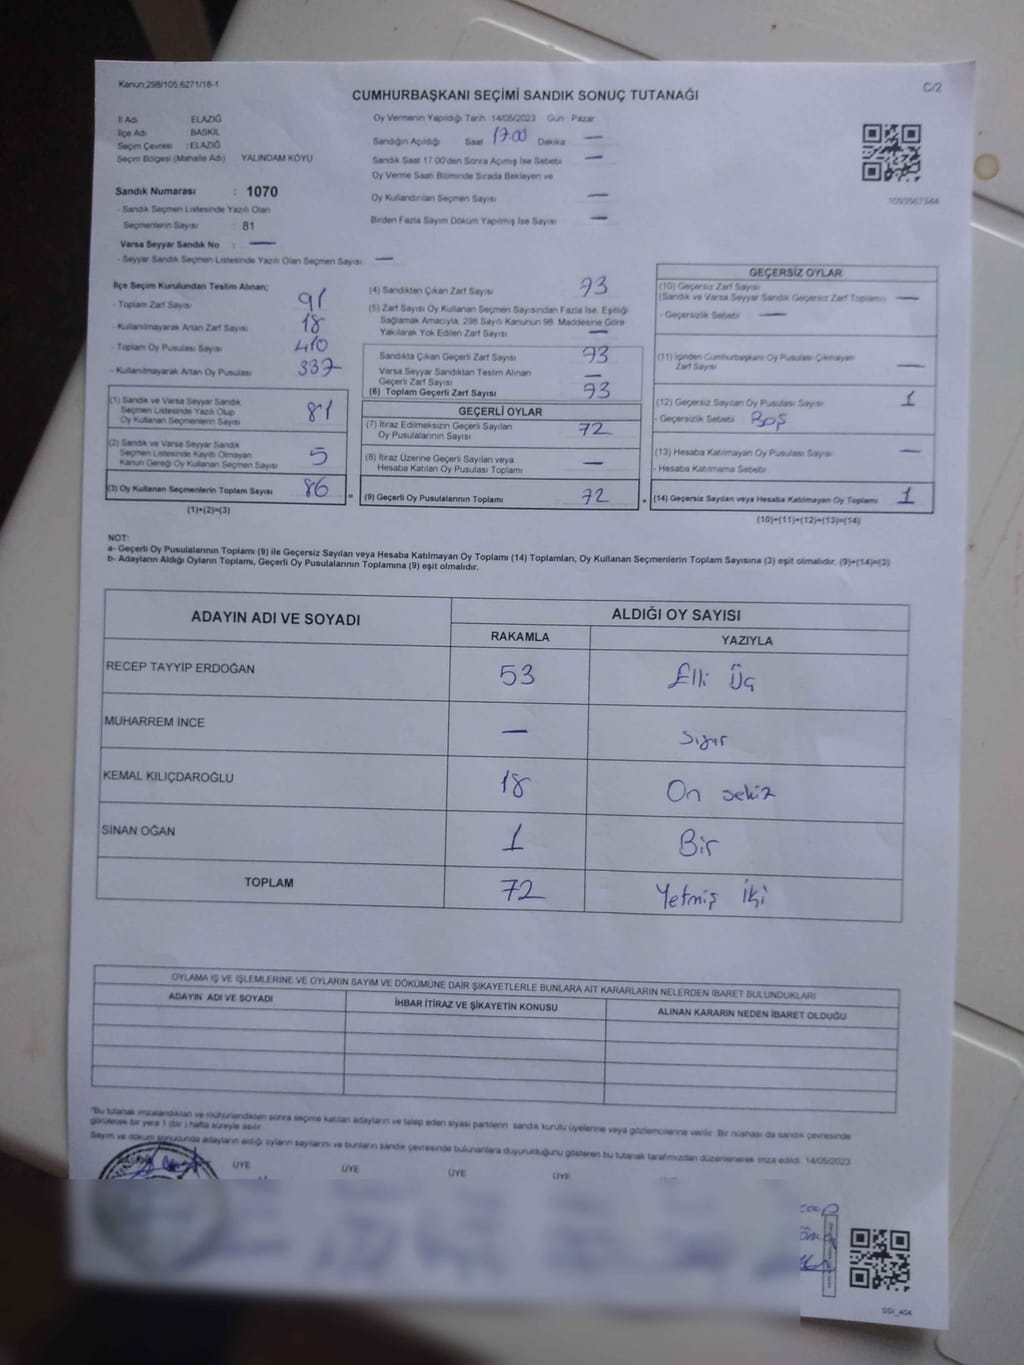 Kanun;298/105,6271/18-1
C/2
CUMHURBAŞKANI SEÇİMİ SANDIK SONUÇ TUTANAĞI
İl Adı : ELAZIĞ
İlçe Adı : BASKİL
Seçim Çevresi : ELAZIĞ
Seçim Bölgesi (Mahalle Adı) YALINDAM KÖYÜ
Sandık Numarası : 1070
- Sandık Seçmen Listesinde Yazılı Olan
Seçmenlerin Sayısı : 81
Varsa Seyyar Sandık No : —
- Seyyar Sandık Seçmen Listesinde Yazılı Olan Seçmen Sayısı —
Oy Vermenin Yapıldığı Tarih : 14/05/2023 Gün : Pazar
Sandığın Açıldığı Saat 17.00 Dakika —
Sandık Saat 17:00'den Sonra Açımış İse Sebebi —
Oy Verme Saati Bitiminde Sırada Bekleyen ve
Oy Kullandırılan Seçmen Sayısı —
Birden Fazla Sayım Döküm Yapılmış İse Sayısı —
1093567344
İlçe Seçim Kurulundan Teslim Alınan;
- Toplam Zarf Sayısı 91
- Kullanılmayarak Artan Zarf Sayısı 18
- Toplam Oy Pusulası Sayısı 410
- Kullanılmayarak Artan Oy Pusulası 337
(1) Sandık ve Varsa Seyyar Sandık
Seçmen Listesinde Yazılı Olup
Oy Kullanan Seçmenlerin Sayısı 81
(2) Sandık ve Varsa Seyyar Sandık
Seçmen Listesinde Kayıtlı Olmayan
Kanun Gereği Oy Kullanan Seçmen Sayısı 5
(3) Oy Kullanan Seçmenlerin Toplam Sayısı 86 =
(1)+(2)=(3)
(4) Sandıktan Çıkan Zarf Sayısı 73
(5) Zarf Sayısı Oy Kullanan Seçmen Sayısından Fazla İse, Eşitliği
Sağlamak Amacıyla, 298 Sayılı Kanunun 98. Maddesine Göre
Yakılarak Yok Edilen Zarf Sayısı —
Sandıkta Çıkan Geçerli Zarf Sayısı 73
Varsa Seyyar Sandıktan Teslim Alınan
Geçerli Zarf Sayısı —
(6) Toplam Geçerli Zarf Sayısı 73
GEÇERLİ OYLAR
(7) İtiraz Edilmeksizin Geçerli Sayılan
Oy Pusulalarının Sayısı 72
(8) İtiraz Üzerine Geçerli Sayılan veya
Hesaba Katılan Oy Pusulası Toplamı —
(9) Geçerli Oy Pusulalarının Toplamı 72 +
GEÇERSİZ OYLAR
(10) Geçersiz Zarf Sayısı
(Sandık ve Varsa Seyyar Sandık Geçersiz Zarf Toplamı) —
- Geçersizlik Sebebi —
(11) İçinden Cumhurbaşkanı Oy Pusulası Çıkmayan
Zarf Sayısı —
(12) Geçersiz Sayılan Oy Pusulası Sayısı 1
- Geçersizlik Sebebi Boş
(13) Hesaba Katılmayan Oy Pusulası Sayısı —
- Hesaba Katılmama Sebebi
(14) Geçersiz Sayılan veya Hesaba Katılmayan Oy Toplamı 1
(10)+(11)+(12)+(13)=(14)
NOT:
a- Geçerli Oy Pusulalarının Toplamı (9) ile Geçersiz Sayılan veya Hesaba Katılmayan Oy Toplamı (14) Toplamları, Oy Kullanan Seçmenlerin Toplam Sayısına (3) eşit olmalıdır. (9)+(14)=(3)
b- Adayların Aldığı Oyların Toplamı, Geçerli Oy Pusulalarının Toplamına (9) eşit olmalıdır.
ADAYIN ADI VE SOYADI ALDIĞI OY SAYISI
RAKAMLA YAZIYLA
RECEP TAYYİP ERDOĞAN 53 Elli Üç
MUHARREM İNCE — Sıfır
KEMAL KILIÇDAROĞLU 18 On sekiz
SİNAN OĞAN 1 Bir
TOPLAM 72 Yetmiş iki
OYLAMA İŞ VE İŞLEMLERİNE VE OYLARIN SAYIM VE DÖKÜMÜNE DAİR ŞİKAYETLERLE BUNLARA AİT KARARLARIN NELERDEN İBARET BULUNDUKLARI
ADAYIN ADI VE SOYADI İHBAR İTİRAZ VE ŞİKAYETİN KONUSU ALINAN KARARIN NEDEN İBARET OLDUĞU
"Bu tutanak imzalandıktan ve mühürlendikten sonra seçime katılan adayların ve talep eden siyasi partilerin sandık kurulu üyelerine veya gözlemcilerine verilir. Bir nüshası da sandık çevresinde
görülecek bir yere 1 (bir) hafta süreyle asılır.
Sayım ve döküm sonucunda adayların aldığı oyların sayılarını ve bunların sandık çevresinde bulunanlara duyurulduğunu gösteren bu tutanak tarafımızdan düzenlenerek imza edildi. 14/05/2023
ÜYE ÜYE ÜYE ÜYE
SSI_404